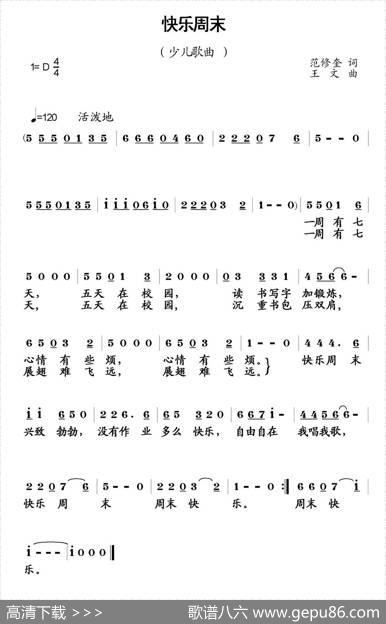 快乐周末
（少儿歌曲）
1=D 4/4
范修奎 词
王文 曲
♩=120 活泼地
(5 5 5 0 1 3 5 | 6 6 6 0 4 6 0 | 2 2 2 0 7 6 | 5 - - 0 |
5 5 5 0 1 3 5 | i i i 0 6 i 0 | 2 2 2 0 3 2 | 1 - - 0) | 5 5 0 1 6 |
一周 有 七
一周 有 七
5 0 0 0 | 5 5 0 1 3 | 2 0 0 0 | 0 3 3 3 1 | 4 5 6 6 - |
天， 五天 在 校 园， 读 书写字 加锻炼，
天， 五天 在 校 园， 沉 重书包 压双肩，
6 5 0 3 2 | 3 0 0 0 | 6 5 0 4 3 | 2 0 0 0 | 1 - - 0 | 4 4 4. 6 |
心情 有 些 烦， 心情 有 些 烦。 快乐周 末
展翅 难 飞 远， 展翅 难 飞 远。
i i 6 5 0 | 2 2 6. 6 | 6 5 3 2 0 | 6 6 7 i - | 4 4 5 6 6 - |
兴致 勃勃， 没有作 业 多么 快乐， 自由自在 我唱我歌，
2 2 0 7 6 | 5 - - 0 | 2 2 0 3 2 | 1 - - 0 :| 6 6 0 7 i |
快乐 周 末 周末 快 乐。 周末 快
i - - - | i 0 0 0 ‖
乐。
高清下载 >>>
歌谱八六 www.gepu86.com